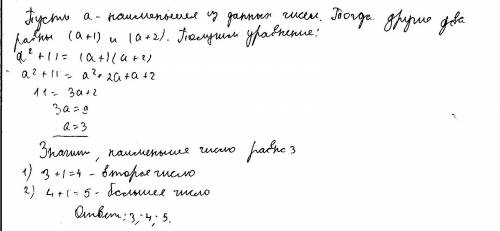 Пусть a - наименьшее из данных чисел. Тогда другие два
равны (a+1) и (a+2). Получим уравнение:
a² + 11 = (a+1)(a+2)
a² + 11 = a² + 2a + a + 2
11 = 3a + 2
3a = 9
a = 3
Значит, наименьшее число равно 3
1) 3+1=4 - второе число
2) 4+1=5 - большее число
Ответ: 3; 4; 5.